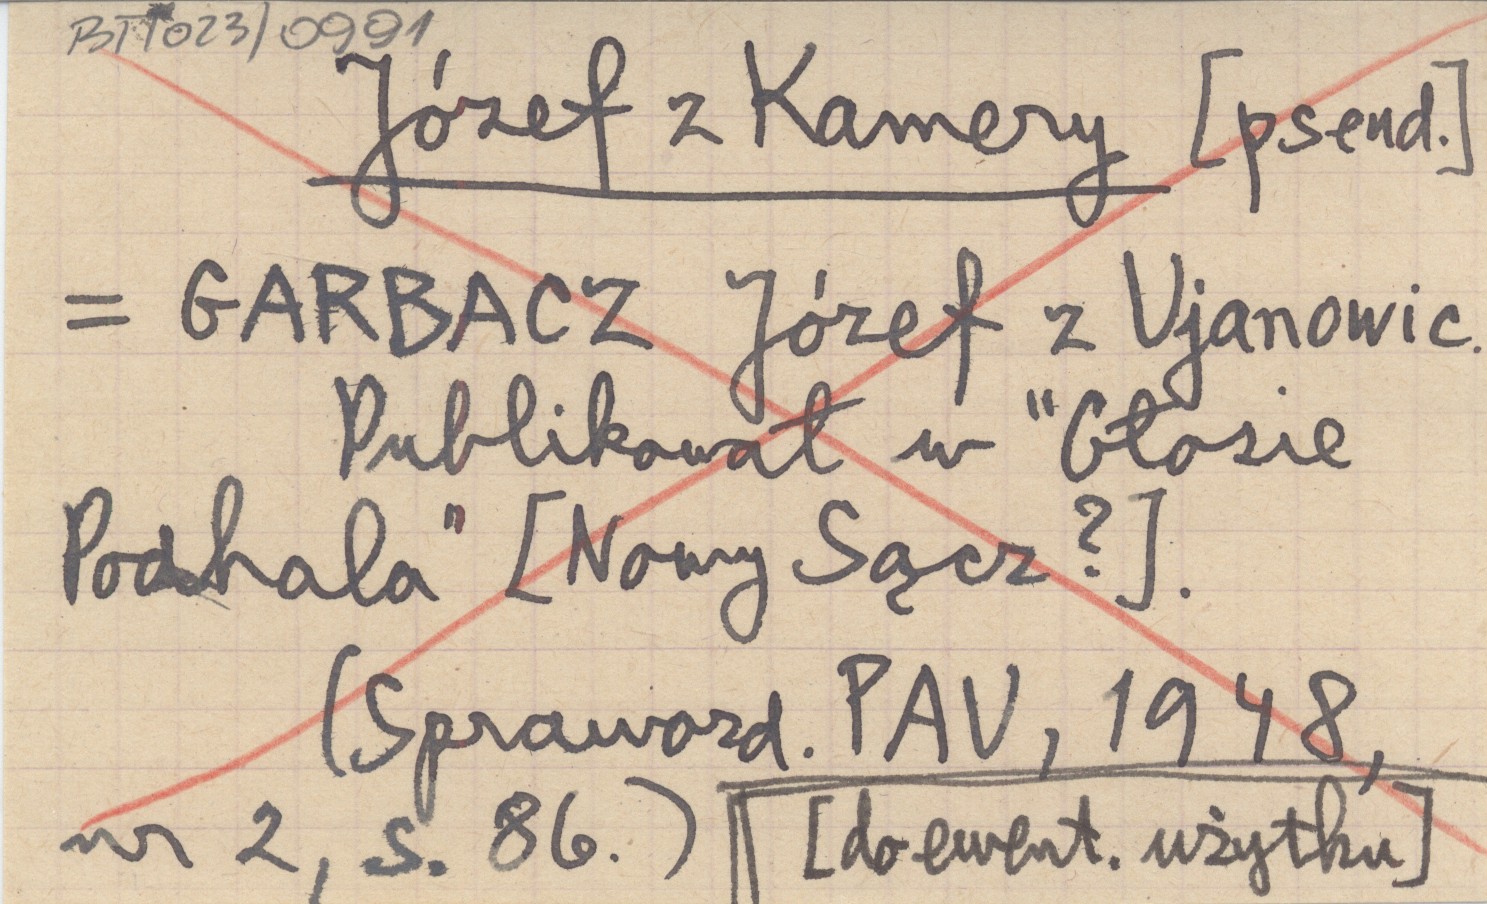 BTT023/0991
Józef z Kamery [pseud.]
= GARBACZ Józef z Ujanowic.
Publikował w "Głosie
Podhala" [Nowy Sącz?].
(Sprawozd. PAU, 1948,
nr 2, s. 86.) [do ewent. użytku]